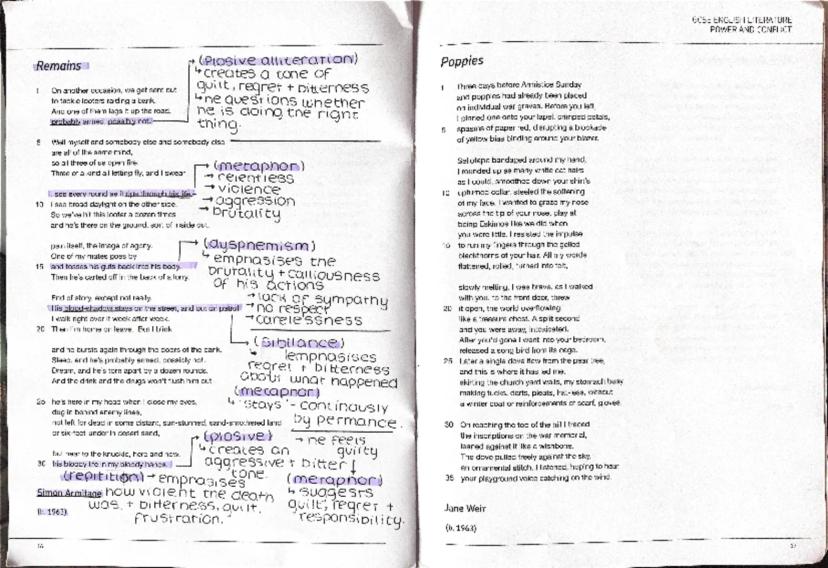 Remains
(Plosive alliteration)
↳ creates a tone of
guilt, regret + bitterness
↳ he questions whether
he is doing the right
thing.
1 On another occasion, we get sent out
to tackle looters raiding a bank.
And one of them legs it up the road,
probably armed, possibly not.
5 Well myself and somebody else and somebody else
are all of the same mind,
so all three of us open fire.
Three of a kind all letting fly, and I swear
(metaphor)
→ relentless
→ violence
→ aggression
→ brutality
I see every round as it rips through his life –
10 I see broad daylight on the other side.
So we've hit this looter a dozen times
and he's there on the ground, sort of inside out,
(dysphemism)
↳ emphasises the
brutality + calliousness
of his actions
pain itself, the image of agony.
One of my mates goes by
15 and tosses his guts back into his body.
Then he's carted off in the back of a lorry.
→ lack of sympathy
→ no respect
→ carelessness
End of story, except not really.
His blood-shadow stays on the street, and out on patrol
I walk right over it week after week.
20 Then I'm home on leave. But I blink
(Sibilance)
↳ emphasises
regret + bitterness
about what happened
and he bursts again through the doors of the bank.
Sleep, and he's probably armed, possibly not.
Dream, and he's torn apart by a dozen rounds.
And the drink and the drugs won't flush him out –
(metaphor)
↳ 'stays' - continously
by permance.
25 he's here in my head when I close my eyes,
dug in behind enemy lines,
not left for dead in some distant, sun-stunned, sand-smothered land
or six-feet-under in desert sand,
(plosive)
↳ creates an
aggressive + bitter
tone.
→ he feels
guilty
but near to the knuckle, here and now,
30 his bloody life in my bloody hands.
(repitition) → emphasises
how violent the death
was, + bitterness, guilt,
frustration."
(metaphor)
↳ suggests
guilt, regret +
responsibility.
Simon Armitage
(b. 1963)
GCSE ENGLISH LITERATURE
POWER AND CONFLICT
Poppies
1 Three days before Armistice Sunday
and poppies had already been placed
on individual war graves. Before you left,
I pinned one onto your lapel, crimped petals,
5 spasms of paper red, disrupting a blockade
of yellow bias binding around your blazer.
Sellotape bandaged around my hand,
I rounded up as many white cat hairs
as I could, smoothed down your shirt's
10 upturned collar, steeled the softening
of my face. I wanted to graze my nose
across the tip of your nose, play at
being Eskimos like we did when
you were little. I resisted the impulse
15 to run my fingers through the gelled
blackthorns of your hair. All my words
flattened, rolled, turned into felt,
slowly melting. I was brave, as I walked
with you, to the front door, threw
20 it open, the world overflowing
like a treasure chest. A split second
and you were away, intoxicated.
After you'd gone I went into your bedroom,
released a song bird from its cage.
25 Later a single dove flew from the pear tree,
and this is where it has led me,
skirting the church yard walls, my stomach busy
making tucks, darts, pleats, hat-less, without
a winter coat or reinforcements of scarf, gloves.
30 On reaching the top of the hill I traced
the inscriptions on the war memorial,
leaned against it like a wishbone.
The dove pulled freely against the sky,
an ornamental stitch. I listened, hoping to hear
35 your playground voice catching on the wind.
Jane Weir
(b. 1963)